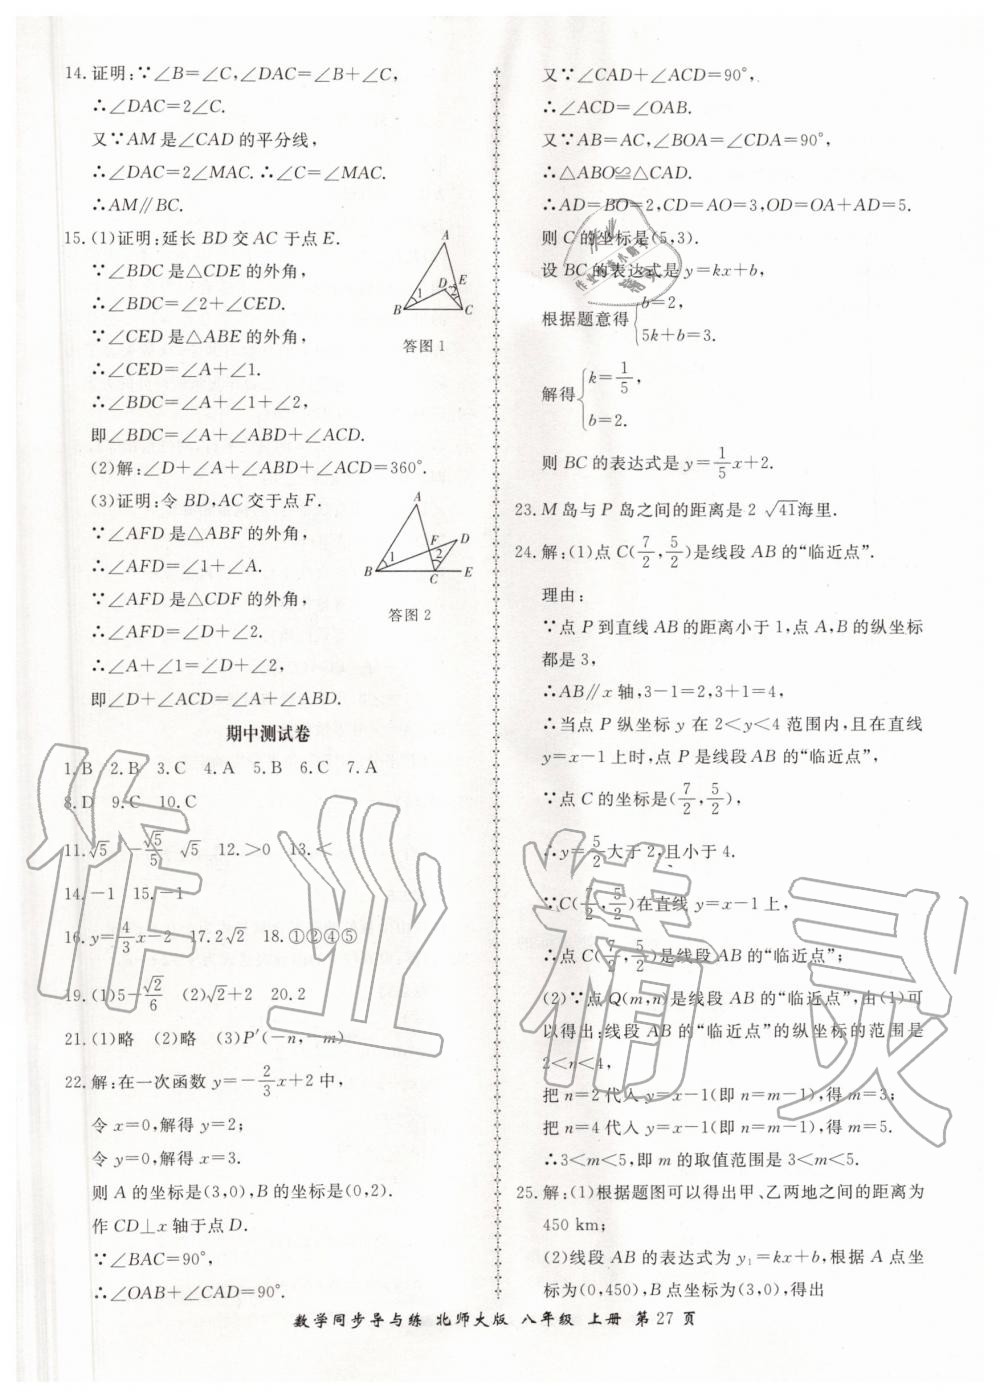 14.证明:∵∠B=∠C,∠DAC=∠B+∠C,
∴∠DAC=2∠C.
又∵AM是∠CAD的平分线,
∴∠DAC=2∠MAC.∴∠C=∠MAC.
∴AM∥BC.
15.(1)证明:延长BD交AC于点E.
∵∠BDC是△CDE的外角,
∴∠BDC=∠2+∠CED.
∵∠CED是△ABE的外角,
∴∠CED=∠A+∠1.
∴∠BDC=∠A+∠1+∠2,
即∠BDC=∠A+∠ABD+∠ACD.
A
E
D
1
2
B
C
答图1
(2)解:∠D+∠A+∠ABD+∠ACD=360°.
(3)证明:令BD,AC交于点F.
∵∠AFD是△ABF的外角,
∴∠AFD=∠1+∠A.
∵∠AFD是△CDF的外角,
∴∠AFD=∠D+∠2.
∴∠A+∠1=∠D+∠2,
即∠D+∠ACD=∠A+∠ABD.
A
F
D
1
2
B
C
E
答图2
期中测试卷
1.B 2.B 3.C 4.A 5.B 6.C 7.A
8.D 9.C 10.C
11.√5 -√5/5 √5 12.>0 13.<
14.-1 15.-1
16.y=4/3x-2 17.2√2 18.①②④⑤
19.(1)5-√2/6 (2)√2+2 20.2
21.(1)略 (2)略 (3)P′(-n,-m)
22.解:在一次函数y=-2/3x+2中,
令x=0,解得y=2;
令y=0,解得x=3.
则A的坐标是(3,0),B的坐标是(0,2).
作CD⊥x轴于点D.
∵∠BAC=90°,
∴∠OAB+∠CAD=90°.
又∵∠CAD+∠ACD=90°,
∴∠ACD=∠OAB.
又∵AB=AC,∠BOA=∠CDA=90°,
∴△ABO≌△CAD.
∴AD=BO=2,CD=AO=3,OD=OA+AD=5.
则C的坐标是(5,3).
设BC的表达式是y=kx+b,
根据题意得{b=2,
5k+b=3.
解得{k=1/5,
b=2.
则BC的表达式是y=1/5x+2.
23.M岛与P岛之间的距离是2√41海里.
24.解:(1)点C(7/2,5/2)是线段AB的“临近点”.
理由:
∵点P到直线AB的距离小于1,点A,B的纵坐标
都是3,
∴AB∥x轴,3-1=2,3+1=4,
∴当点P纵坐标y在2<y<4范围内,且在直线
y=x-1上时,点P是线段AB的“临近点”,
∵点C的坐标是(7/2,5/2),
∴y=5/2大于2,且小于4.
∵C(7/2,5/2)在直线y=x-1上,
∴点C(7/2,5/2)是线段AB的“临近点”;
(2)∵点Q(m,n)是线段AB的“临近点”,由(1)可
以得出:线段AB的“临近点”的纵坐标的范围是
2<n<4,
把n=2代入y=x-1(即n=m-1),得m=3;
把n=4代入y=x-1(即n=m-1),得m=5.
∴3<m<5,即m的取值范围是3<m<5.
25.解:(1)根据题图可以得出甲、乙两地之间的距离为
450 km;
(2)线段AB的表达式为y₁=kx+b,根据A点坐
标为(0,450),B点坐标为(3,0),得出
数学同步导与练 北师大版 八年级 上册 第27页
作业精灵